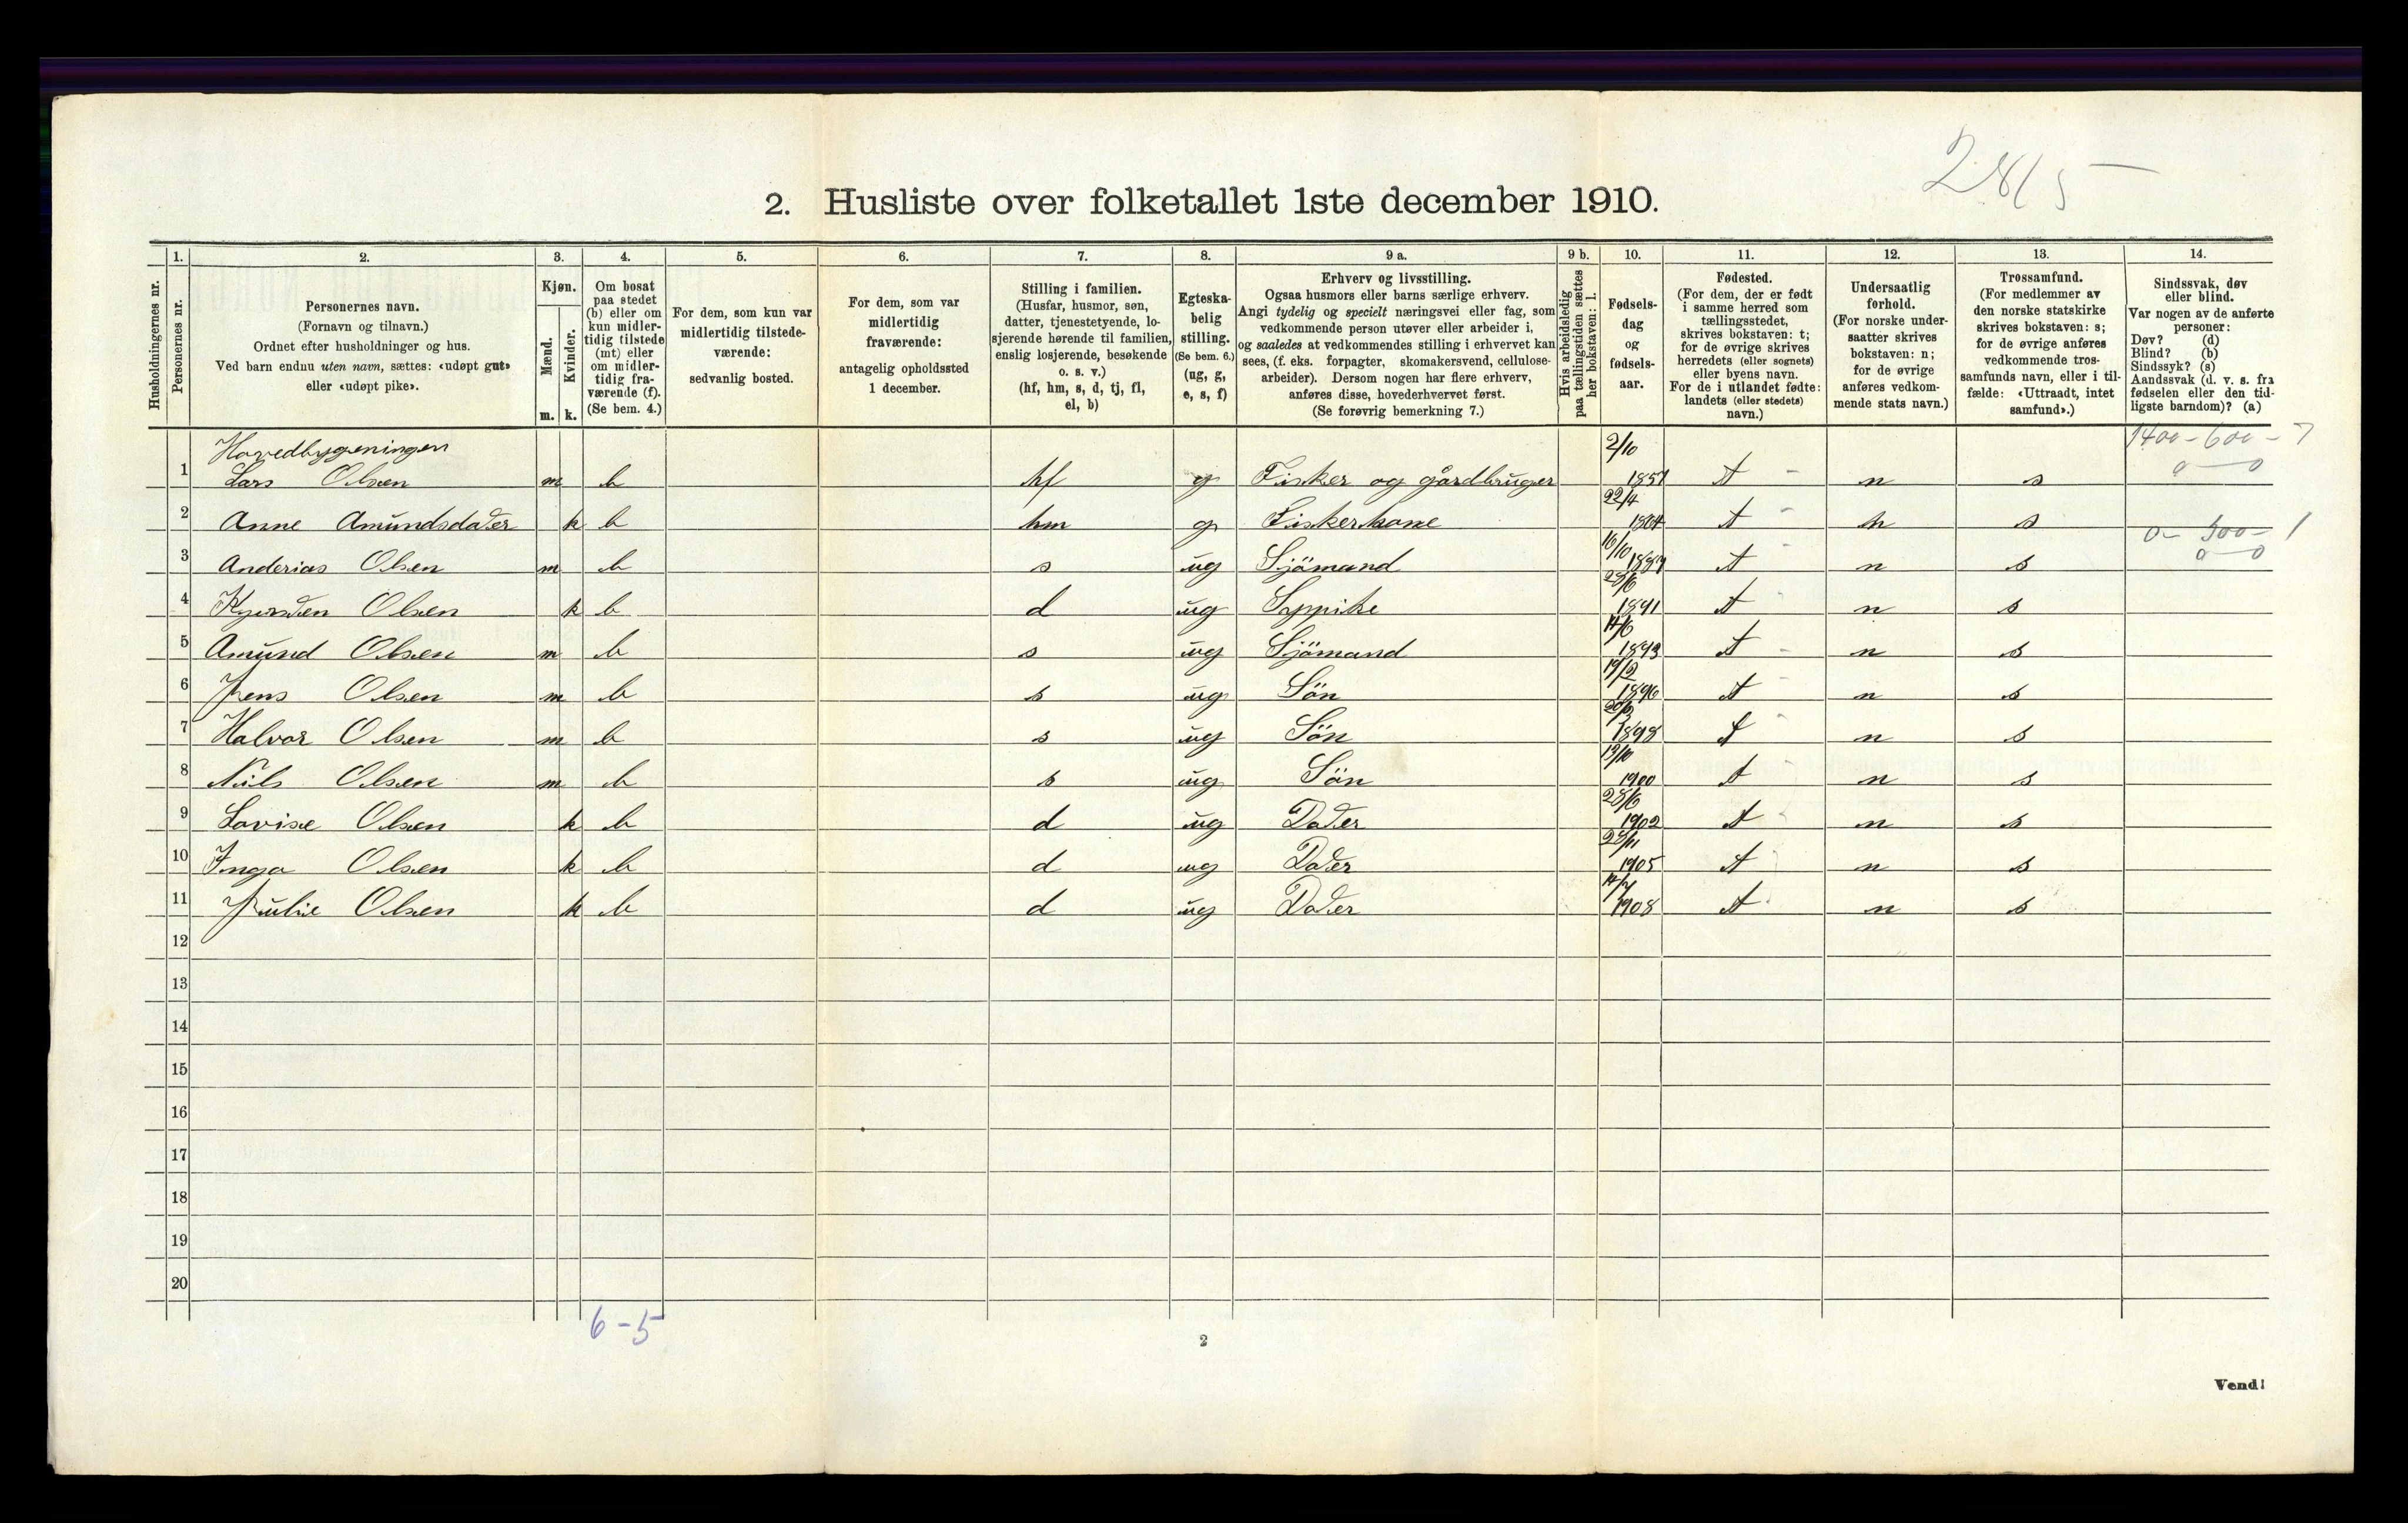 28/5
2. Husliste over folketallet 1ste december 1910.
Husholdningernes nr.
1. Personernes nr.
2. Personernes navn.
(Fornavn og tilnavn.)
Ordnet efter husholdninger og hus.
Ved barn endnu uten navn, sættes: «udøpt gut»
eller «udøpt pike».
3. Kjøn.
Mænd. m.
Kvinder. k.
4. Om bosat
paa stedet
(b) eller om
kun midler-
tidig tilstede
(mt) eller
om midler-
tidig fra-
værende (f).
(Se bem. 4.)
5. For dem, som kun var
midlertidig tilstede-
værende:
sedvanlig bosted.
6. For dem, som var
midlertidig
fraværende:
antagelig opholdssted
1 december.
7. Stilling i familien.
(Husfar, husmor, søn,
datter, tjenestetyende, lo-
sjerende hørende til familien,
enslig losjerende, besøkende
o. s. v.)
(hf, hm, s, d, tj, fl,
el, b)
8. Egteska-
belig
stilling.
(Se bem. 6.)
(ug, g,
e, s, f)
9 a. Erhverv og livsstilling.
Ogsaa husmors eller barns særlige erhverv.
Angi tydelig og specielt næringsvei eller fag, som
vedkommende person utøver eller arbeider i,
og saaledes at vedkommendes stilling i erhvervet kan
sees, (f. eks. forpagter, skomakersvend, cellulose-
arbeider). Dersom nogen har flere erhverv,
anføres disse, hovederhvervet først.
(Se forøvrig bemerkning 7.)
9 b. Hvis arbeidsledig
paa tællingstiden sættes
her bokstaven: l.
10. Fødsels-
dag
og
fødsels-
aar.
11. Fødested.
(For dem, der er født
i samme herred som
tællingsstedet,
skrives bokstaven: t;
for de øvrige skrives
herredets (eller sognets)
eller byens navn.
For de i utlandet fødte:
landets (eller stedets)
navn.)
12. Undersaatlig
forhold.
(For norske under-
saatter skrives
bokstaven: n;
for de øvrige
anføres vedkom-
mende stats navn.)
13. Trossamfund.
(For medlemmer av
den norske statskirke
skrives bokstaven: s;
for de øvrige anføres
vedkommende tros-
samfunds navn, eller i til-
fælde: «Uttraadt, intet
samfund».)
14. Sindssvak, døv
eller blind.
Var nogen av de anførte
personer:
Døv? (d)
Blind? (b)
Sindssyk? (s)
Aandssvak (d. v. s. fra
fødselen eller den tid-
ligste barndom)? (a)
Hovedbygeningen 2/10 1400 - 600 - 7
1 Lars Olsen m b hf g Fisker og gårdbruger t n s 0 - 0
2 Anne Amundsdater k b hm g Fiskerkone 22/4 t n s
0 - 500 - 1
3 Anderias Olsen m b s ug Sjömand 16/10 t n s 0 - 0
4 Olsen k b d ug 28/6 1891 t n s
5 Amund Olsen m b s ug Sjömand 1893 t n s
6 Jens Olsen m b s ug Sön 1896 t n s
7 Halvor Olsen m b s ug Sön 1898 t n s
8 Nils Olsen m b s ug Sön 13/10 1900 t n s
9 Lovise Olsen k b d ug Dater 28/6 1902 t n s
10 Inga Olsen k b d ug Dater 28/11 1905 t n s
11 Julie Olsen k b d ug Dater 1908 t n s
12
13
14
15
16
17
18
19
20
6 - 5
2
Vend!